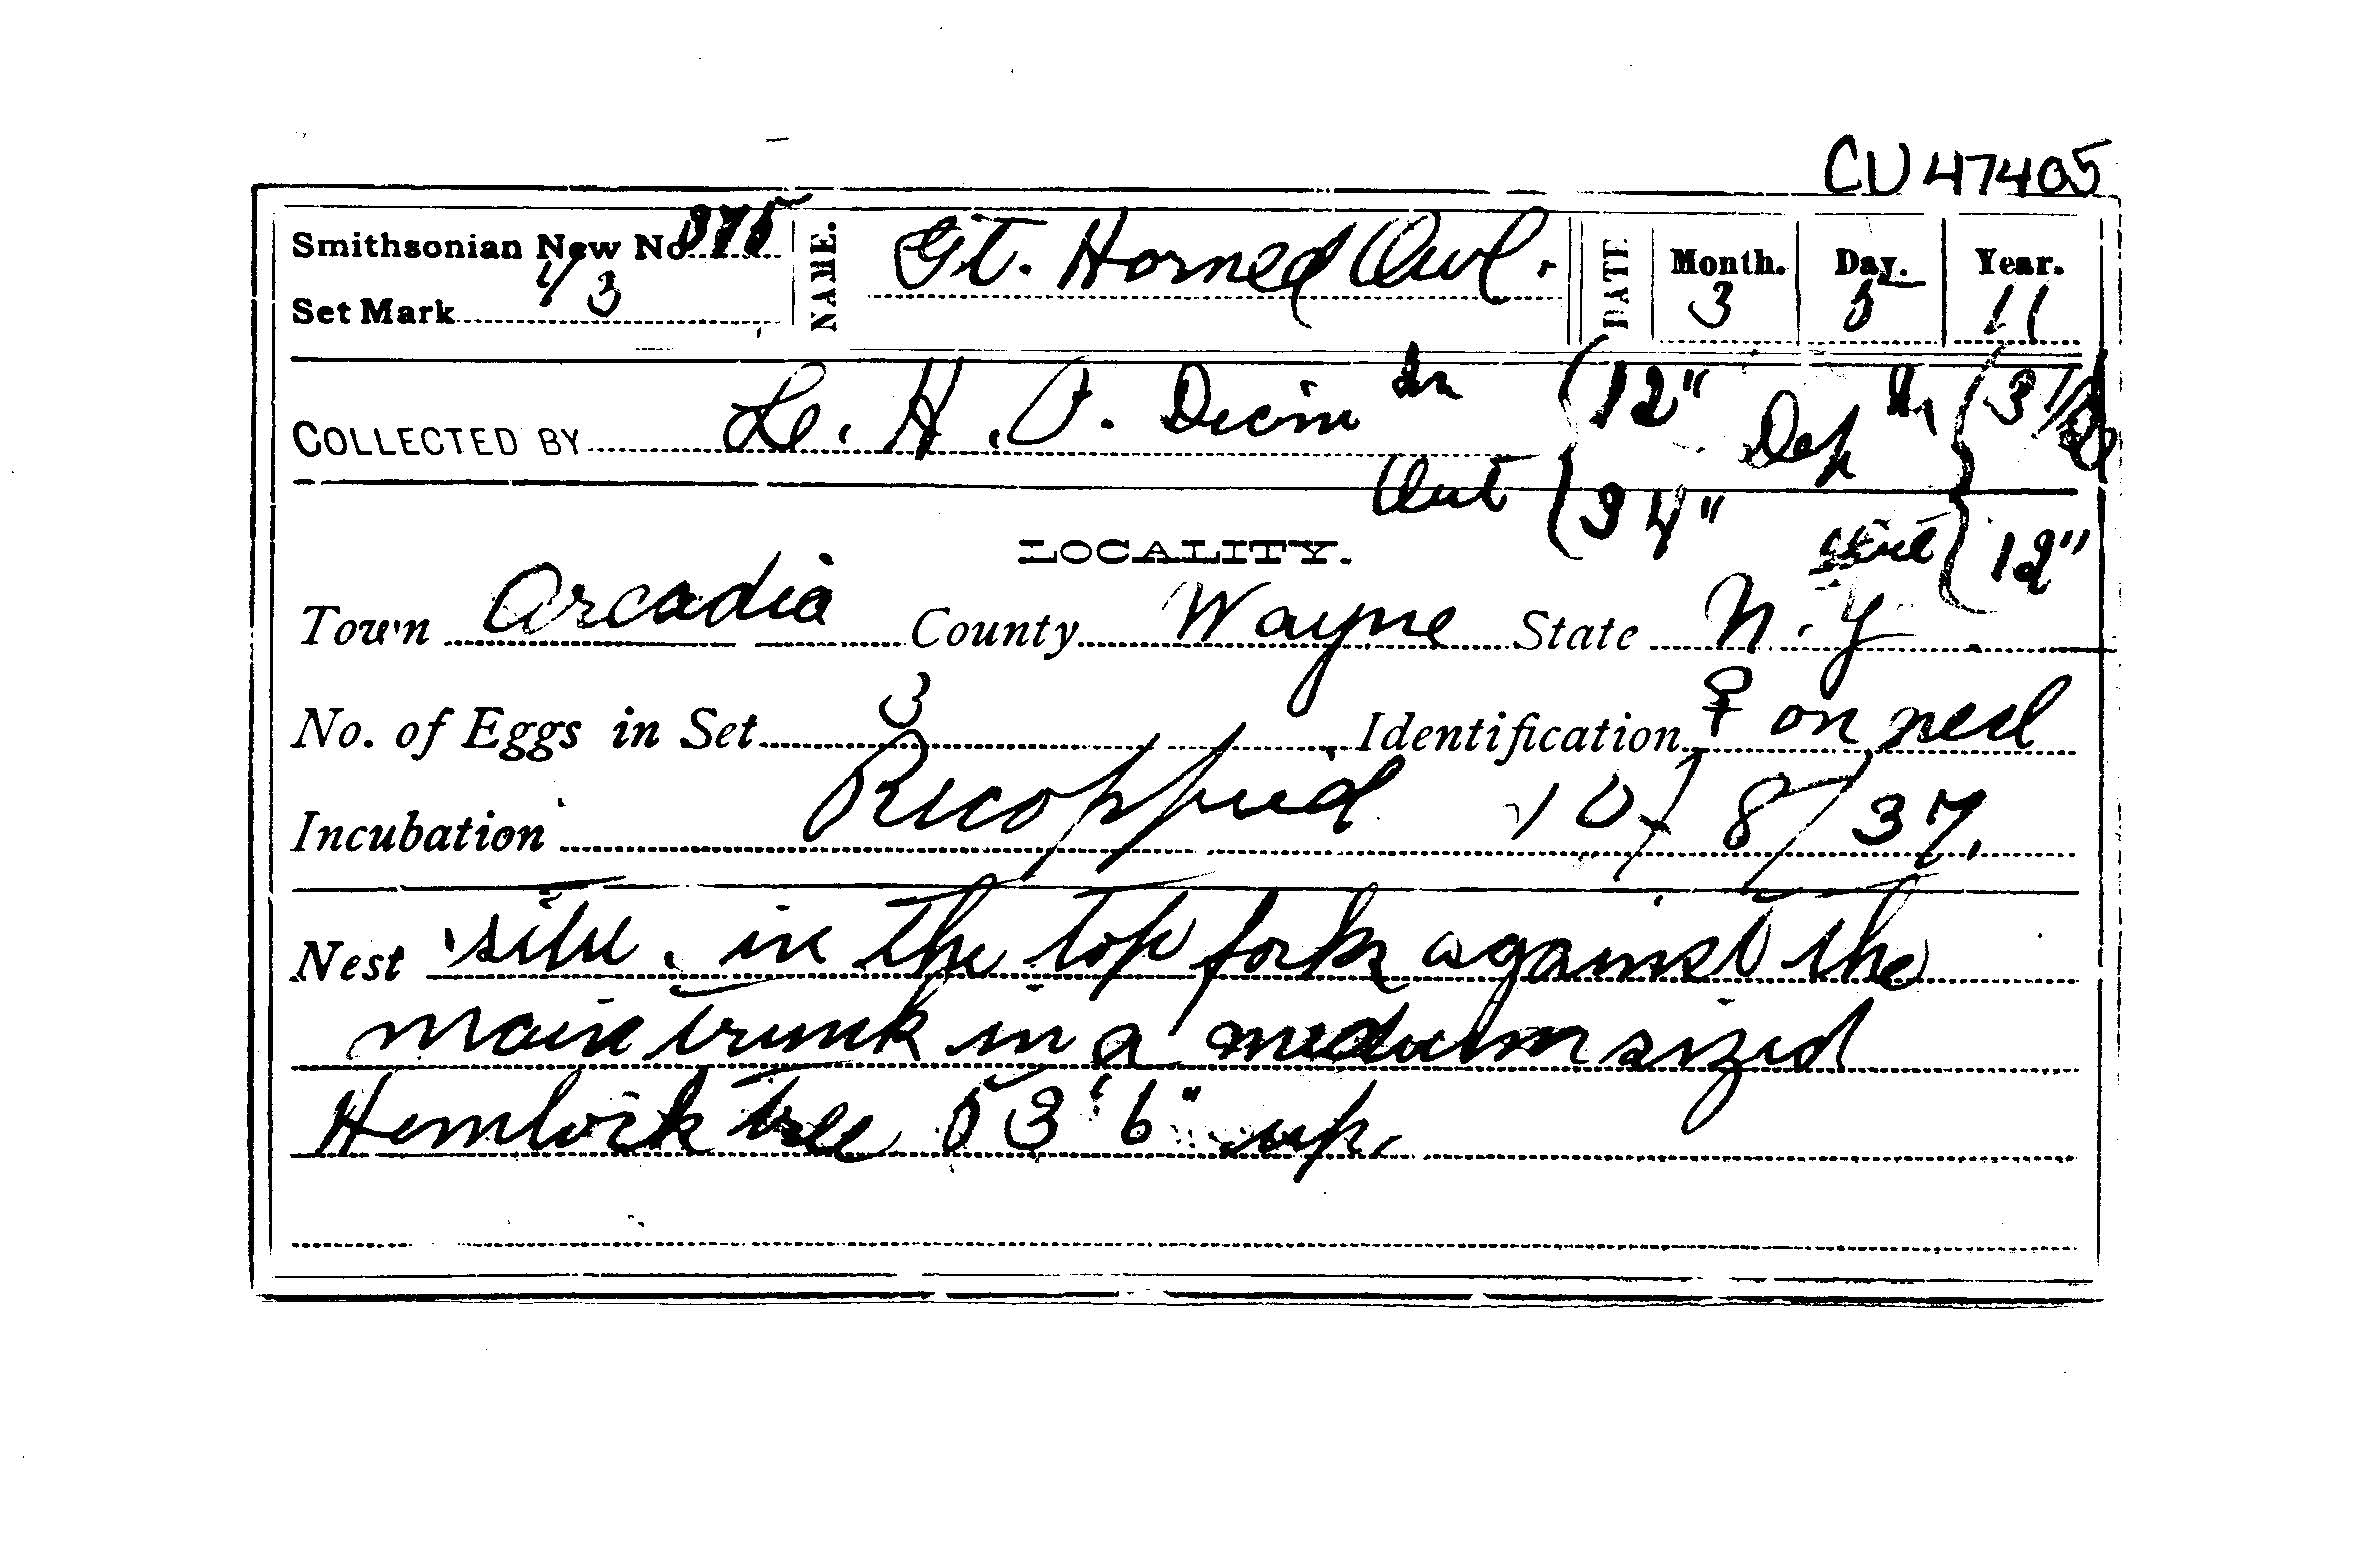 CU 47405
Smithsonian New No. 375
Set Mark 1/3
NAME. Gt. Horned Owl.
DATE Month. 3 Day. 5 Year. 11
COLLECTED BY H. Diam In { 12" Dep In { 3 1/2
Out { 34" Out { 12"
LOCALITY.
Town Arcadia County Wayne State N.Y.
No. of Eggs in Set 3 Identification ♀ on nest
Incubation Recoppied 10/8/37.
Nest site. in the top forks against the
main trunk in a medium sized
Hemlock tree 53' 6" up.